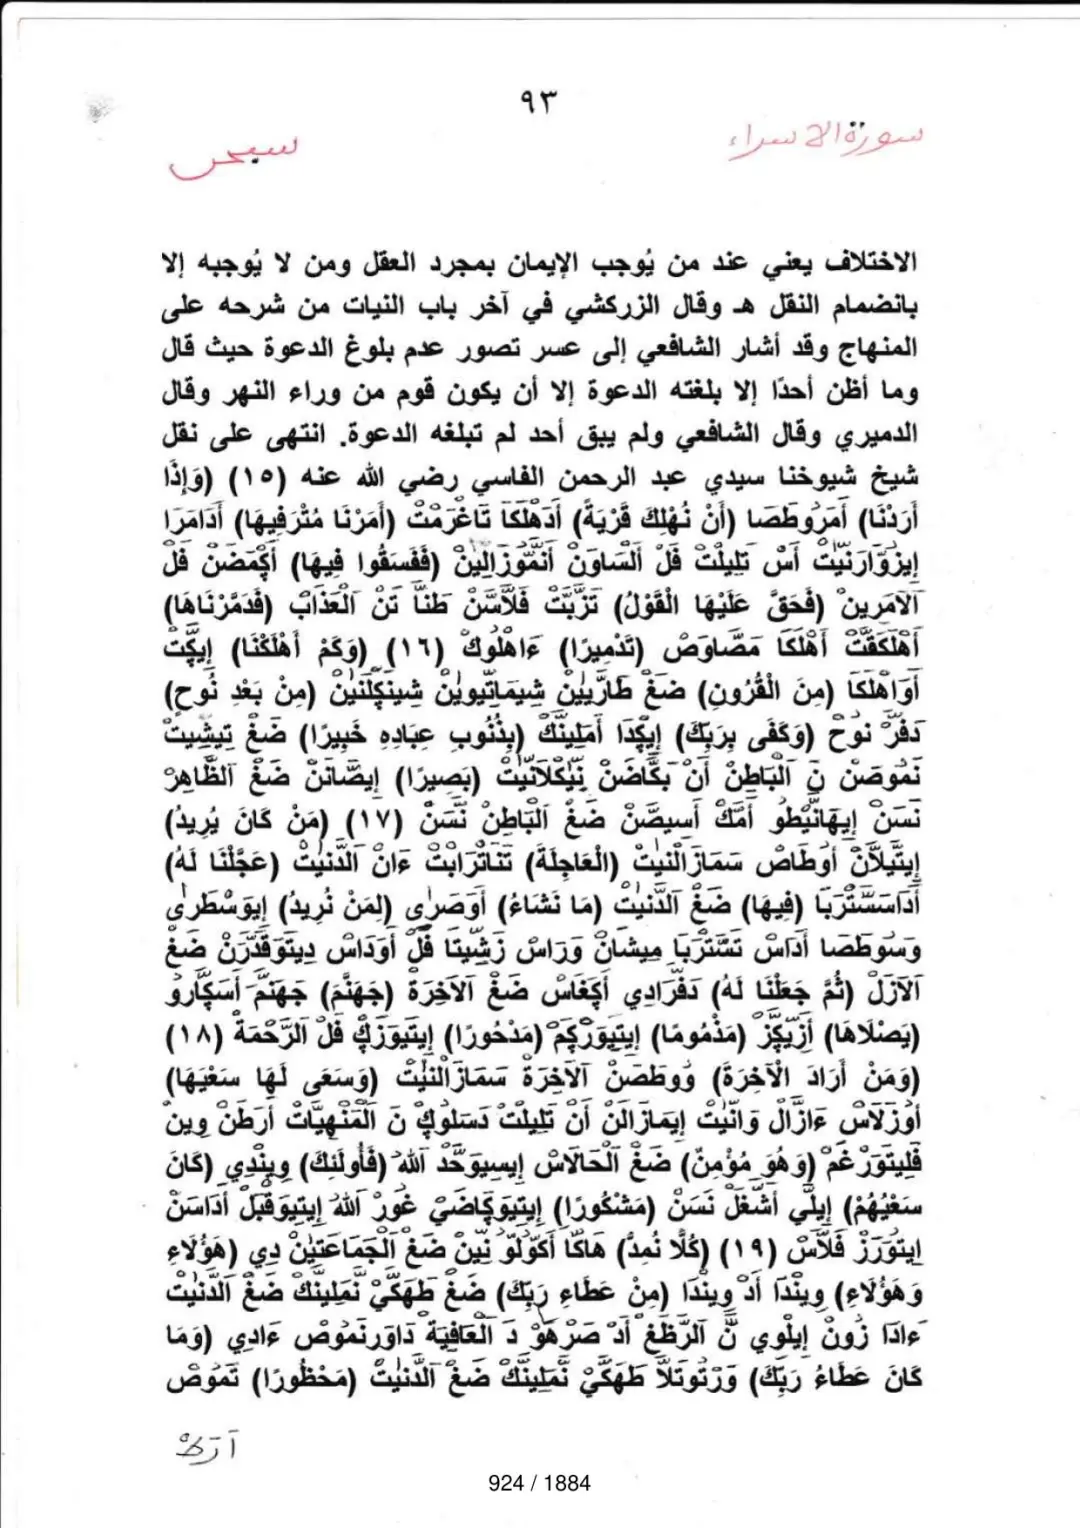 ٩٣
سورة الاسراء
سبحن
الاختلاف يعني عند من يُوجب الإيمان بمجرد العقل ومن لا يُوجبه إلا
بانضمام النقل هـ وقال الزركشي في آخر باب النيات من شرحه على
المنهاج وقد أشار الشافعي إلى عسر تصور عدم بلوغ الدعوة حيث قال
وما أظن أحدًا إلا بلغته الدعوة إلا أن يكون قوم من وراء النهر وقال
الدميري وقال الشافعي ولم يبق أحد لم تبلغه الدعوة. انتهى على نقل
شيخ شيوخنا سيدي عبد الرحمن الفاسي رضي الله عنه (١٥) (وَإِذَا
أَرَدْنَا) أَمَرُوطَصَا (أَنْ نُهْلِكَ قَرْيَةً) أَدَهْلَكَا تَاغْرَمْتْ (أَمَرْنَا مُتْرَفِيهَا) أَدَامَرَا
إِيزْوَارَنِيّتْ أَسْ تَلِيلْتْ فَلْ اَلْسَاوَنْ أَنَمُّوزَالِينْ (فَفَسَقُوا فِيهَا) أَكْمَضَنْ فَلْ
اَلَامَرِينْ (فَحَقَّ عَلَيْهَا الْقَوْلُ) تَزَّبَتْ فَلَّاسَنْ طَنَّا تَنْ اَلْعَذَابْ (فَدَمَّرْنَاهَا)
أَهْلَكَقَّتْ أَهْلَكَا مَصَّاوَصْ (تَدْمِيرًا) ءَاهْلُوكْ (١٦) (وَكَمْ أَهْلَكْنَا) إِيكَّتْ
أَوَاهْلَكَا (مِنَ الْقُرُونِ) ضَغْ طَارِيِيْنْ شِيمَاتِيوِينْ شِينَكَلْنَيْنْ (مِنْ بَعْدِ نُوحٍ)
دَفَّرْ نُوحْ (وَكَفَى بِرَبِّكَ) إِيكْدَا أَمَلِينَكْ (بِذُنُوبِ عِبَادِهِ خَبِيرًا) ضَغْ تِيشِّيتْ
نَمُوصَنْ نَ اَلْبَاطِنْ أَنْ بَكَّاضَنْ نَيْكْلَانِيّتْ (بَصِيرًا) إِيصَّانَنْ ضَغْ اَلظَّاهِرْ
نَسَنْ إِيهَانَيْطُو أَمَكْ أَسِيصَّنْ ضَغْ اَلْبَاطِنْ نَسَنْ (١٧) (مَنْ كَانَ يُرِيدُ)
إِيتِيلَآنْ أُوطَاصْ سَمَازَالْنِيتْ (الْعَاجِلَةَ) تَنَاتْرَابَتْ ءَانْ اَلدُّنْيْتْ (عَجَّلْنَا لَهُ)
أَدَاسَسَّتْرَبَا (فِيهَا) ضَغْ اَلدُّنْيْتْ (مَا نَشَاءُ) أَوَصَرَى (لِمَنْ نُرِيدُ) إِيوَسْطَرَى
وَسُوطَصَا أَدَاسْ تَسَّتْرَبَا مِيشَانْ وَرَاسْ زَشِّيتَا فَلْ أَوَدَاسْ دِيتَوَقَدَّرَنْ ضَغْ
اَلَازَلْ (ثُمَّ جَعَلْنَا لَهُ) دَفَّرَادِي أَكَغَاسْ ضَغْ اَلَاخِرَةْ (جَهَنَّمَ) جَهَنَّمَ أَسَكَارُو
(يَصْلَاهَا) أَزِيكَّزْ (مَذْمُومًا) إِيتِيوَزْكَمْ (مَدْحُورًا) إِيتِيوَزَكْ فَلْ اَلرَّحْمَةْ (١٨)
(وَمَنْ أَرَادَ الْآخِرَةَ) وُوطَصَنْ اَلَاخِرَةْ سَمَازَالْنِيتْ (وَسَعَى لَهَا سَعْيَهَا)
أُوزَلَاسْ ءَازَّالْ وَانِّيتْ إِيمَازَالَنْ أَنْ تَلِيلْتْ دَسَلُوكْ نَ اَلْمَنْهِيَّاتْ أَرَطَنْ وِينْ
فَلِيتَوَرْغَمْ (وَهُوَ مُؤْمِنٌ) ضَغْ اَلْحَالَاسْ إِيسِيوَحَّدْ اَللهْ (فَأُولَئِكَ) وِينْدِي (كَانَ
سَعْيُهُمْ) إِيلَّى أَشَّغَلْ نَسَنْ (مَشْكُورًا) إِيتِيوَكَاضَيْ غُورْ اَللهْ إِيتِيوَقْبَلْ أَدَاسَنْ
إِيتَوَرَزْ فَلَّاسْ (١٩) (كُلًّا نُمِدُّ) هَاكَّا أَكُولُّو نَيْنْ ضَغْ اَلْجَمَاعَتَيْنْ دِي (هَؤُلَاءِ
وَهَؤُلَاءِ) وِينْدَا أَدْ وِينْدَا (مِنْ عَطَاءِ رَبِّكَ) ضَغْ طَهَكَّيْ نَمَلِينَكْ ضَغْ اَلدُّنْيْتْ
ءَادَا زُونْ إِيلْوِي نَّ اَلرَّظَغْ أَدْ صَرْهَوْ دَ اَلْعَافِيَةْ دَاوَرْنَمُوصْ ءَادِي (وَمَا
كَانَ عَطَاءُ رَبِّكَ) وَرْتُوتَلَّا طَهَكَّيْ نَّمَلِينَكْ ضَغْ اَلدُّنْيْتْ (مَحْظُورًا) تَمُوصْ
924 / 1884